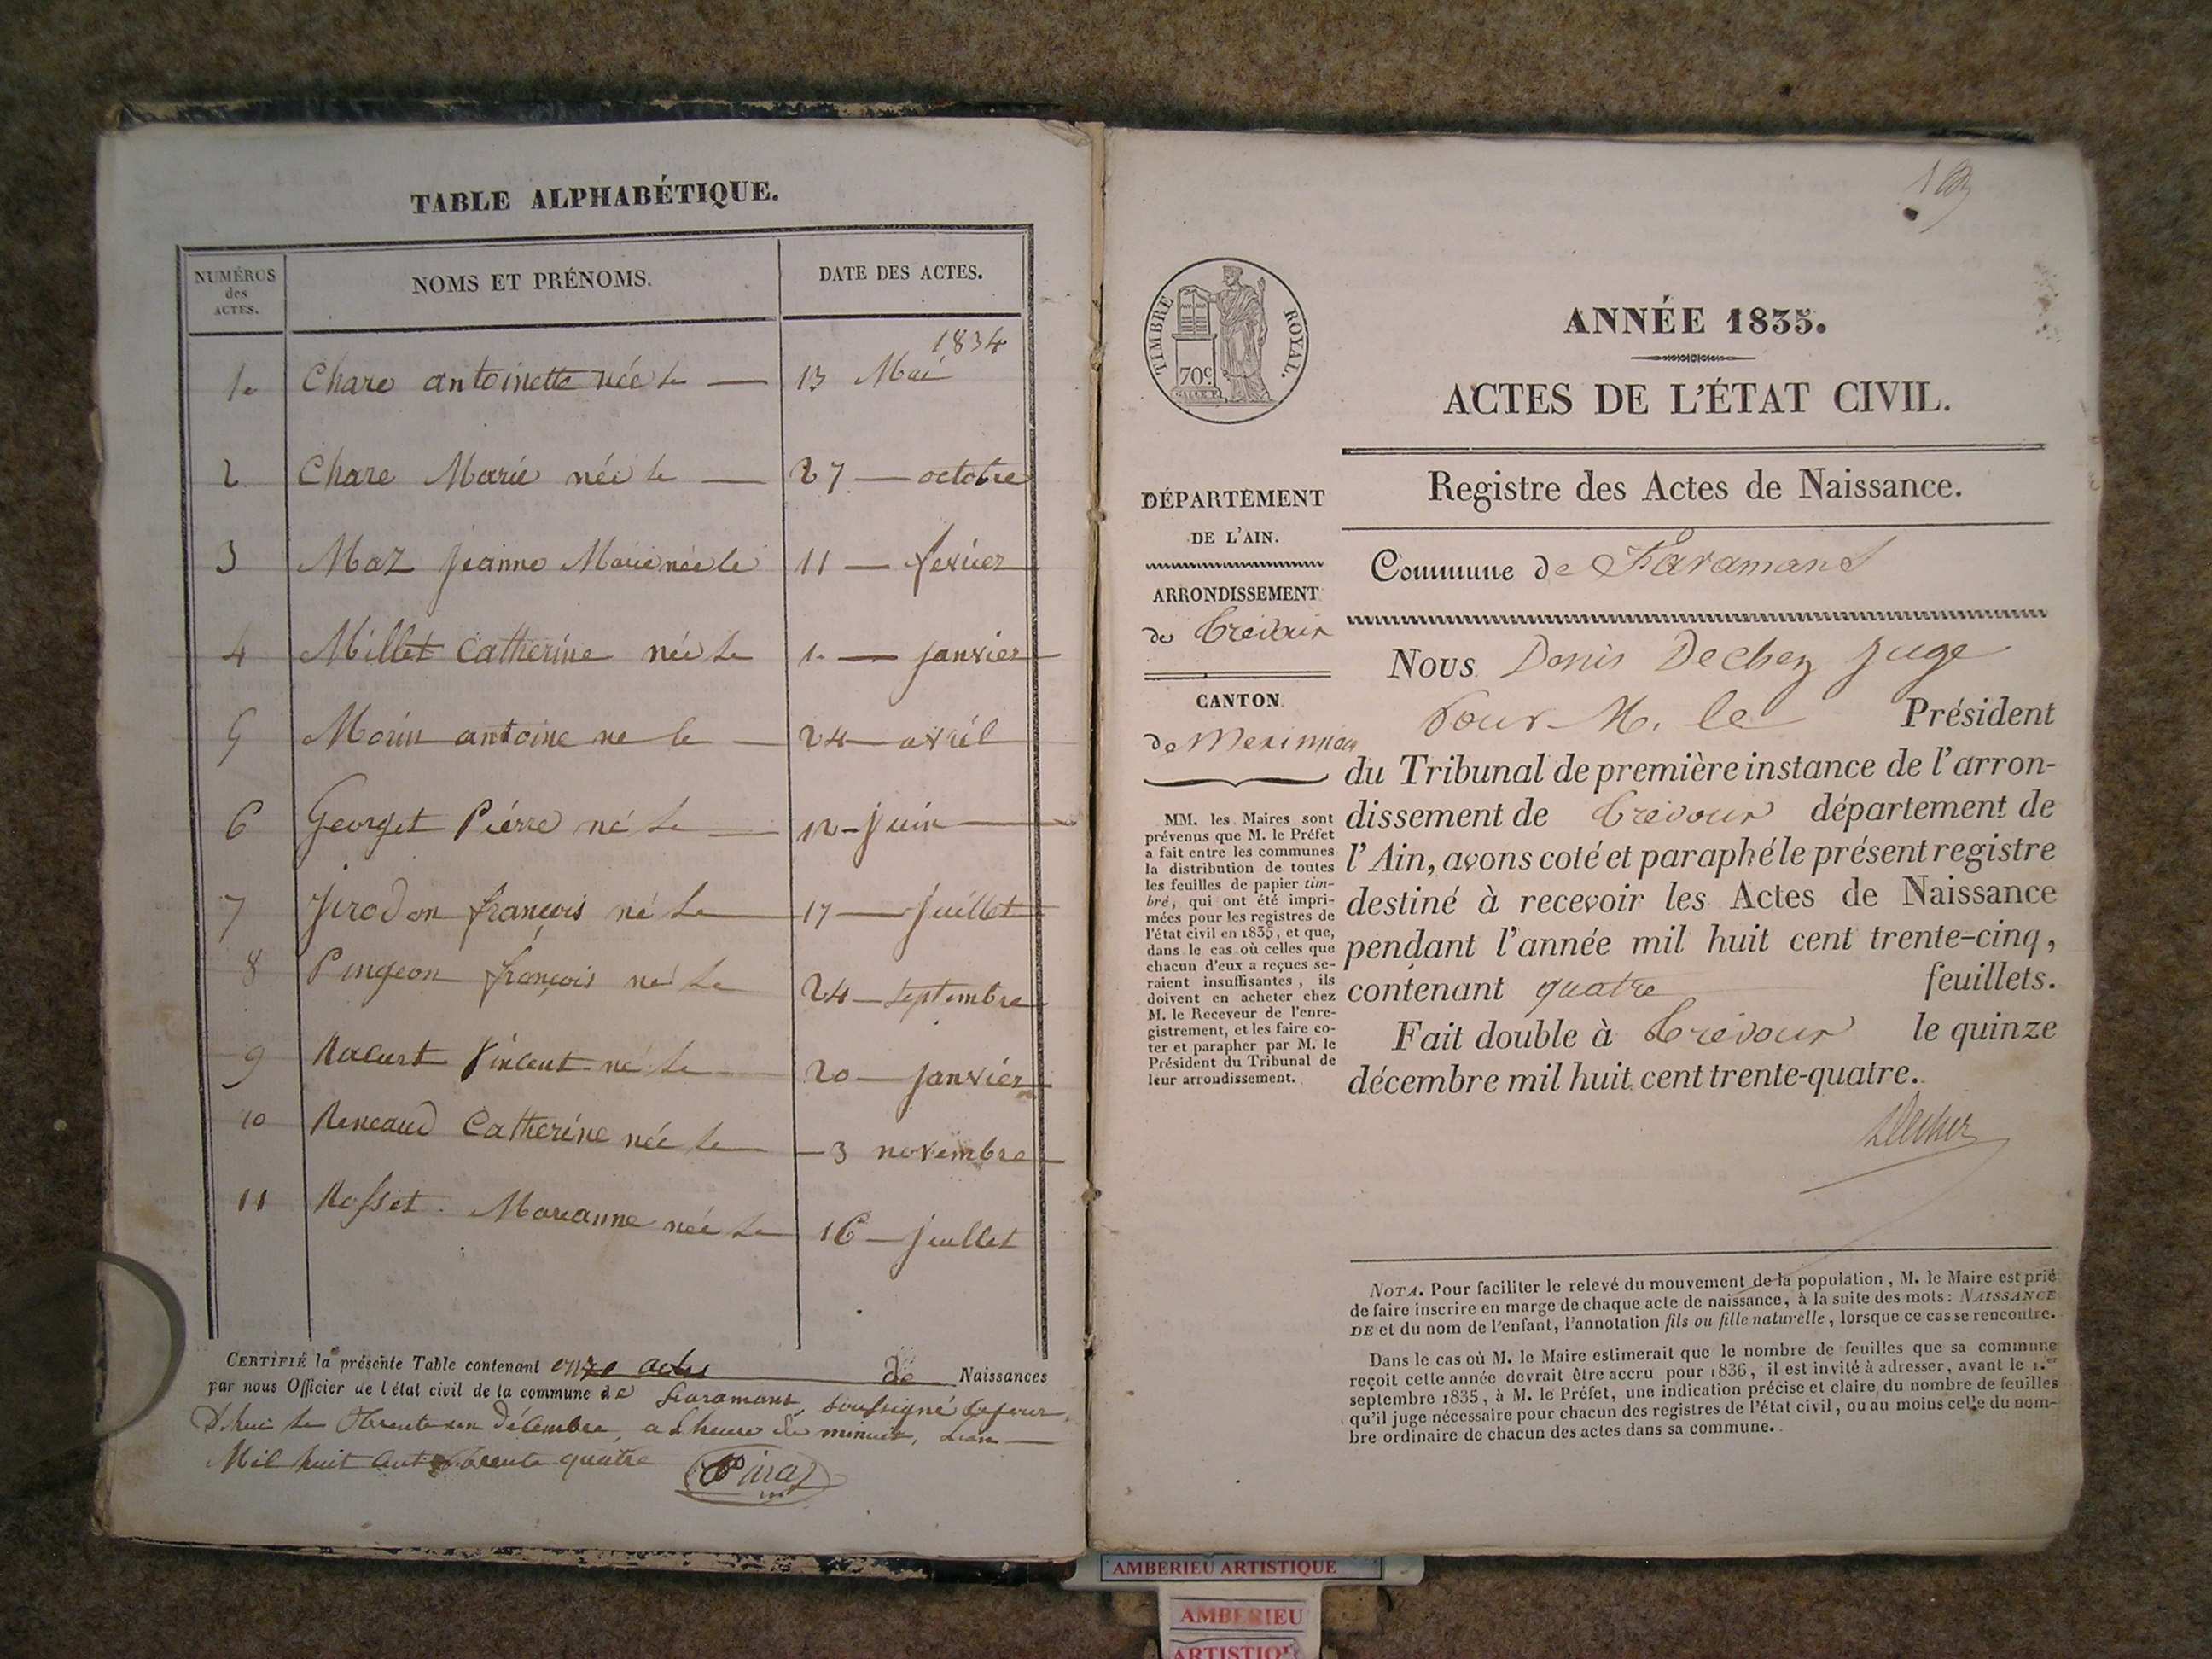 TABLE ALPHABÉTIQUE.
NUMÉROS des ACTES. NOMS ET PRÉNOMS. DATE DES ACTES.
1834
1. Chare antoinette née le — 13 Mai
2 Chare Marie née le — 27 — octobre
3 Maz jeanne Marie née le 11 — fevrier
4 Millet Catherine née le 1. — janvier
5 Morin antoine ne le — 24 — avril
6 Georget Pierre né le — 12 — juin —
7 Jirodon françois né le — 17 — Juillet
8 Pingeon françois né le 24 — septembre
9 Racurt Vincent né le — 20 — janvier
10 Reneaud Catherine née le — 3 novembre
11 Rosset Marianne née le — 16 — juillet
CERTIFIÉ la présente Table contenant onze actes de Naissances
par nous Officier de l'état civil de la commune de faramans soussigné
le trente un décembre, a l'heure de minuit,
Mil huit cent trente quatre
ANNÉE 1835.
ACTES DE L'ÉTAT CIVIL.
TIMBRE ROYAL.
70c
Registre des Actes de Naissance.
DÉPARTEMENT
DE L'AIN.
ARRONDISSEMENT
de Trevoux
CANTON
de Meximieux
MM. les Maires sont
prévenus que M. le Préfet
a fait entre les communes
la distribution de toutes
les feuilles de papier tim-
bré, qui ont été impri-
mées pour les registres de
l'état civil en 1835, et que,
dans le cas où celles que
chacun d'eux a reçues se-
raient insuffisantes, ils
doivent en acheter chez
M. le Receveur de l'enre-
gistrement, et les faire co-
ter et parapher par M. le
Président du Tribunal de
leur arrondissement.
Commune de Faramans
Nous Denis Dechez Juge
pour M. le Président
du Tribunal de première instance de l'arron-
dissement de Trevoux département de
l'Ain, avons coté et paraphé le présent registre
destiné à recevoir les Actes de Naissance
pendant l'année mil huit cent trente-cinq,
contenant quatre feuillets.
Fait double à Trevoux le quinze
décembre mil huit cent trente-quatre.
NOTA. Pour faciliter le relevé du mouvement de la population, M. le Maire est prié
de faire inscrire en marge de chaque acte de naissance, à la suite des mots: NAISSANCE
DE et du nom de l'enfant, l'annotation fils ou fille naturelle, lorsque ce cas se rencontre.
Dans le cas où M. le Maire estimerait que le nombre de feuilles que sa commune
reçoit cette année devrait être accru pour 1836, il est invité à adresser, avant le 1.er
septembre 1835, à M. le Préfet, une indication précise et claire du nombre de feuilles
qu'il juge nécessaire pour chacun des registres de l'état civil, ou au moins celle du nom-
bre ordinaire de chacun des actes dans sa commune.
AMBERIEU ARTISTIQUE
AMBERIEU
ARTISTIQUE